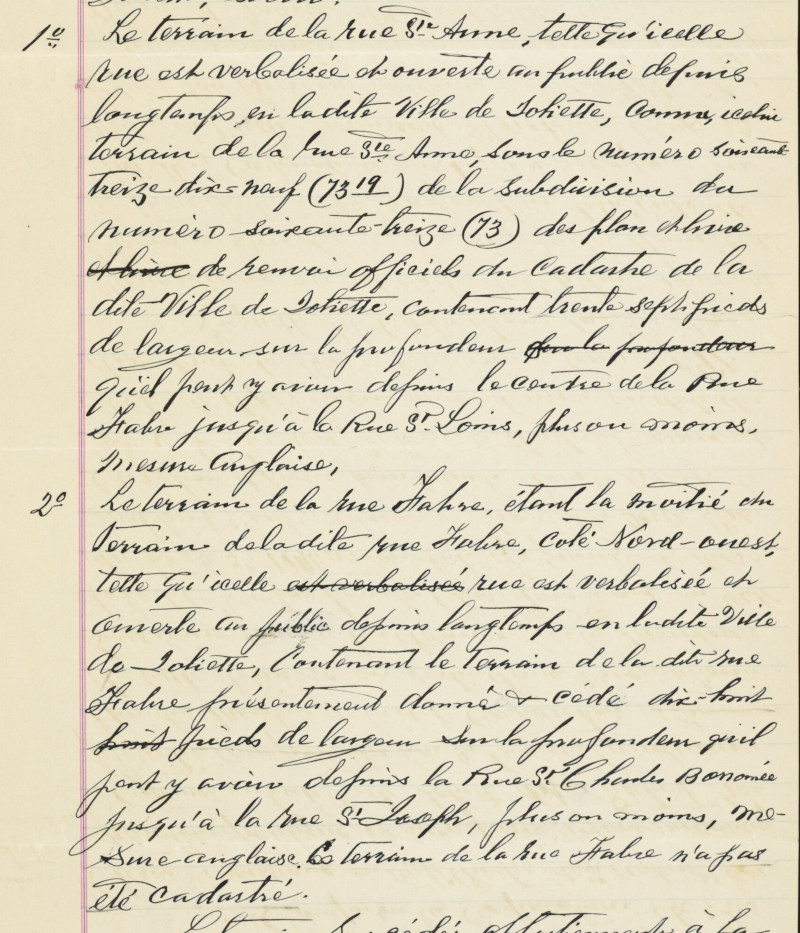 1º Le terrain de la rue Ste Anne, telle qu'icelle
rue est verbalisée et ouverte au public depuis
longtemps, en ladite Ville de Joliette, connu, icelui
terrain de la rue Ste Anne, sous le numéro soixante
treize dix-neuf (73 19) de la subdivision du
numéro soixante-treize (73) des plan et livre
et livre de renvoi officiels du Cadastre de la
dite Ville de Joliette, contenant trente sept pieds
de largeur sur la profondeur sur la profondeur
qu'il peut y avoir depuis le centre de la Rue
Fabre jusqu'à la Rue St Louis, plus ou moins,
mesure anglaise,
2º Le terrain de la rue Fabre, étant la moitié du
terrain de la dite rue Fabre, coté Nord-ouest,
telle qu'icelle est verbalisée rue est verbalisée et
ouverte au public depuis longtemps en ladite Ville
de Joliette, Contenant le terrain de la dite rue
Fabre présentement donné & cédé dix-huit
huit pieds de largeur sur la profondeur qu'il
peut y avoir depuis la Rue St Charles Borromée
jusqu'à la rue St Joseph, plus ou moins, me-
sure anglaise. Ce terrain de la rue Fabre n'a pas
été cadastré.